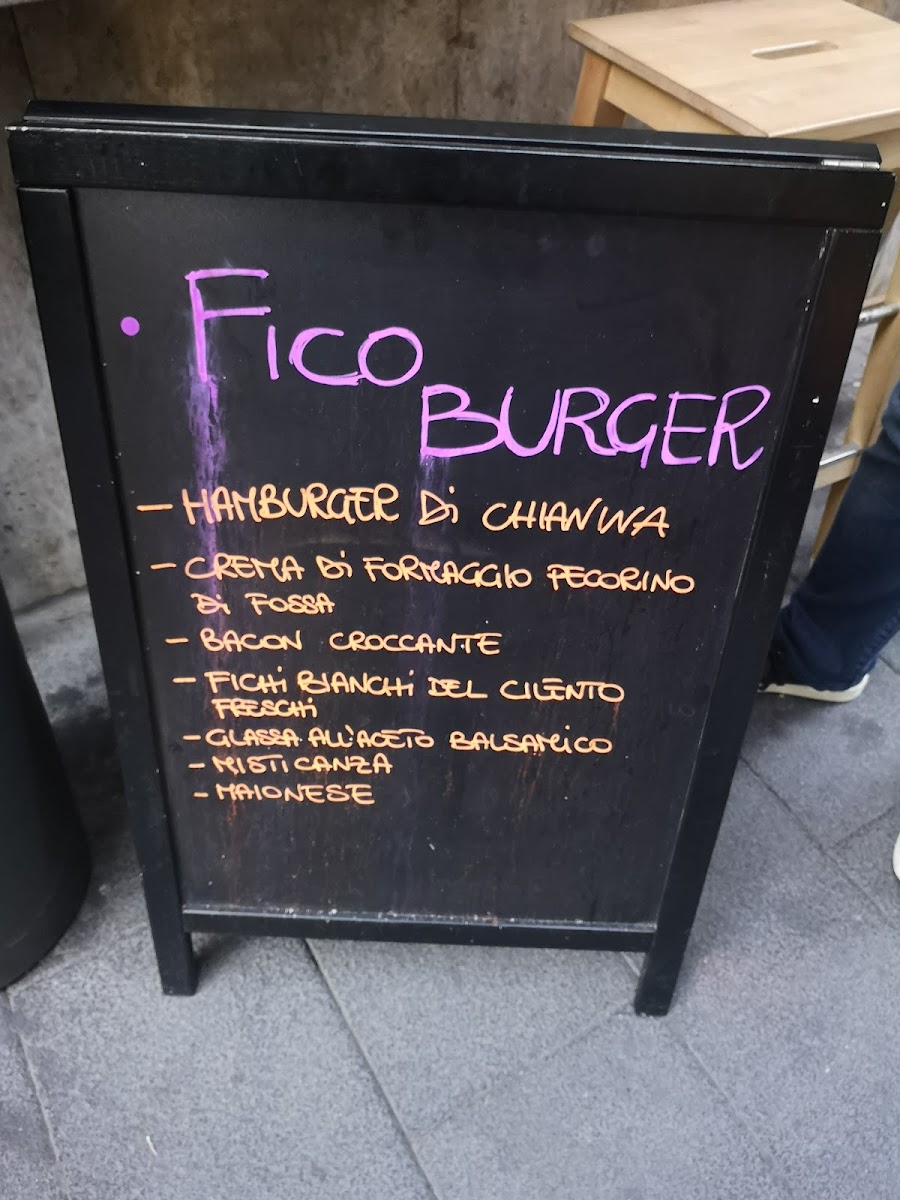 • FICO
BURGER
- HAMBURGER Di CHIANINA
- CREMA Di FORMAGGIO PECORINO
Di FOSSA
- BACON CROCCANTE
- FICHi BIANCHi DEL CILENTO
FRESCHi
- GLASSA ALL'ACETO BALSAMICO
- MISTICANZA
- MAIONESE